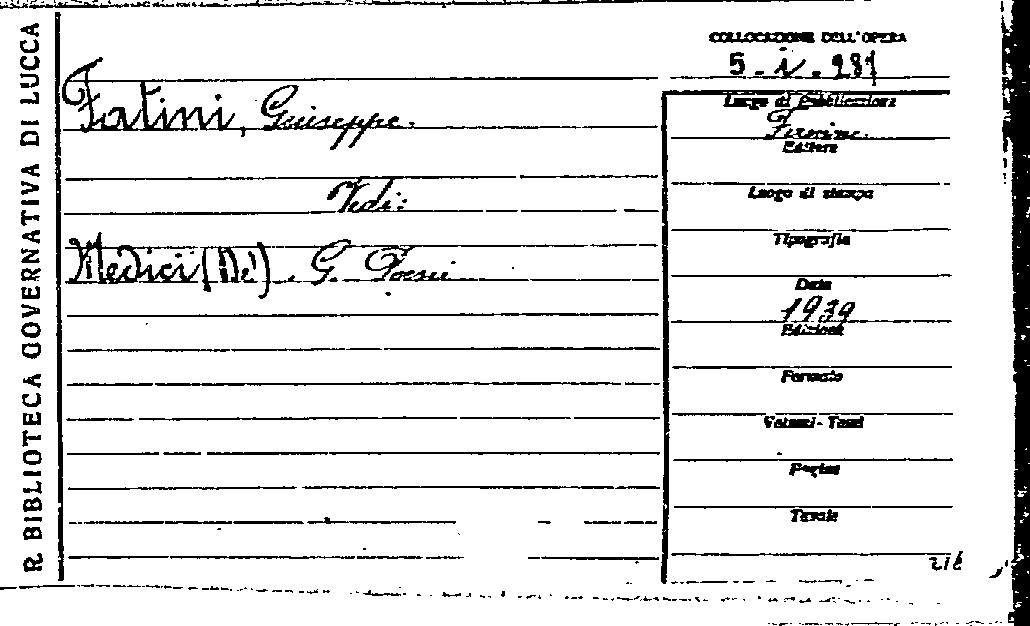 R. BIBLIOTECA GOVERNATIVA DI LUCCA
COLLOCAZIONE DELL'OPERA
5 - i - 281
Fatini, Giuseppe.
Vedi:
Medici (De'). G. Poesie
Luogo di Pubblicazione
Firenze.
Editore
Luogo di stampa
Tipografia
Data
1939
Edizione
Formato
Volumi - Tomi
Pagine
Tavole